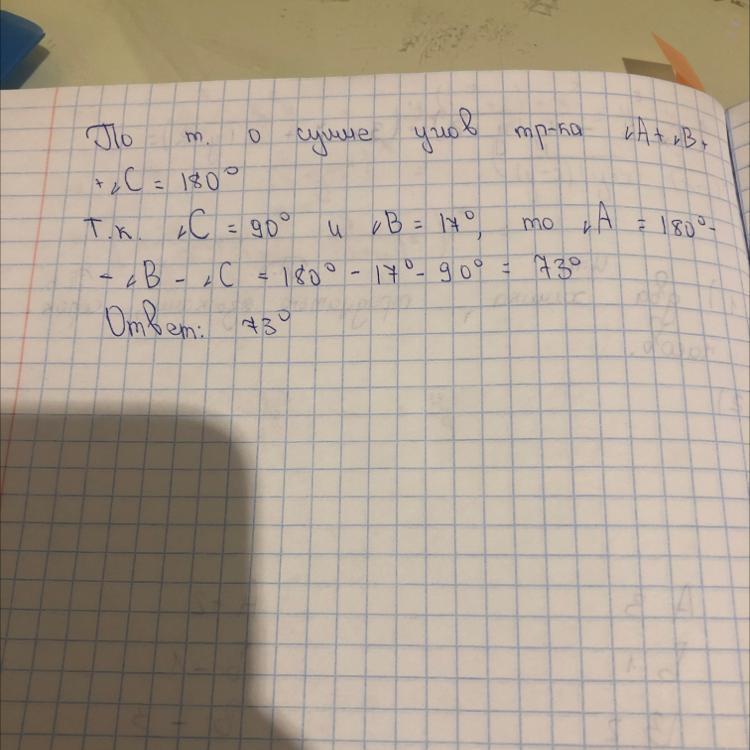 По т. о сумме углов тр-ка ∠A+∠B+
+∠C = 180°
Т.к. ∠C = 90° и ∠B = 17°, то ∠A = 180°-
- ∠B - ∠C = 180° - 17° - 90° = 73°
Ответ: 73°